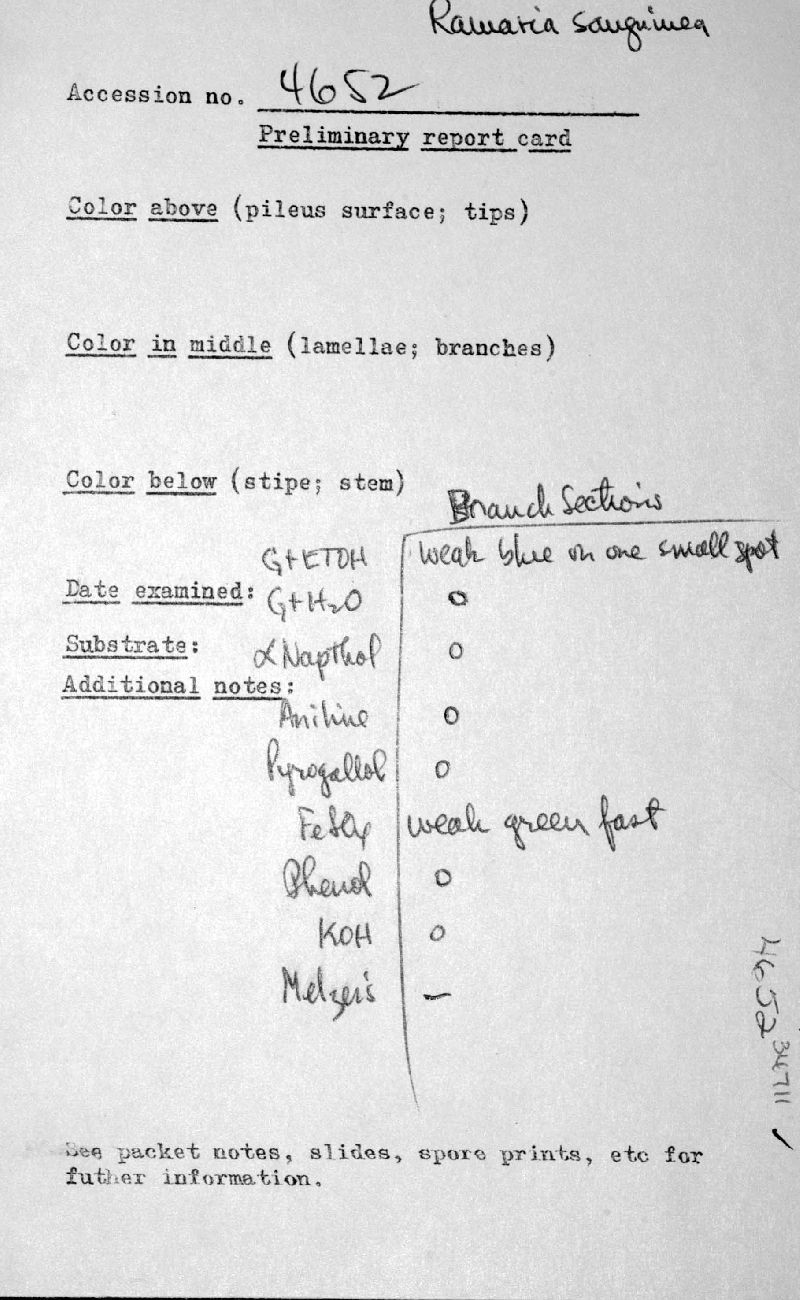 Ramaria sanguinea
Accession no. 4652
Preliminary report card
Color above (pileus surface; tips)
Color in middle (lamellae; branches)
Color below (stipe; stem)
Branch Sections
G+ETOH weak blue on one small spot
Date examined: G+H₂O o
Substrate: αNapthol o
Additional notes:
Aniline o
Pyrogallol o
FeSO₄ weak green fast
Phenol o
KOH o
Melzer's –
4652
34711
See packet notes, slides, spore prints, etc for
futher information.